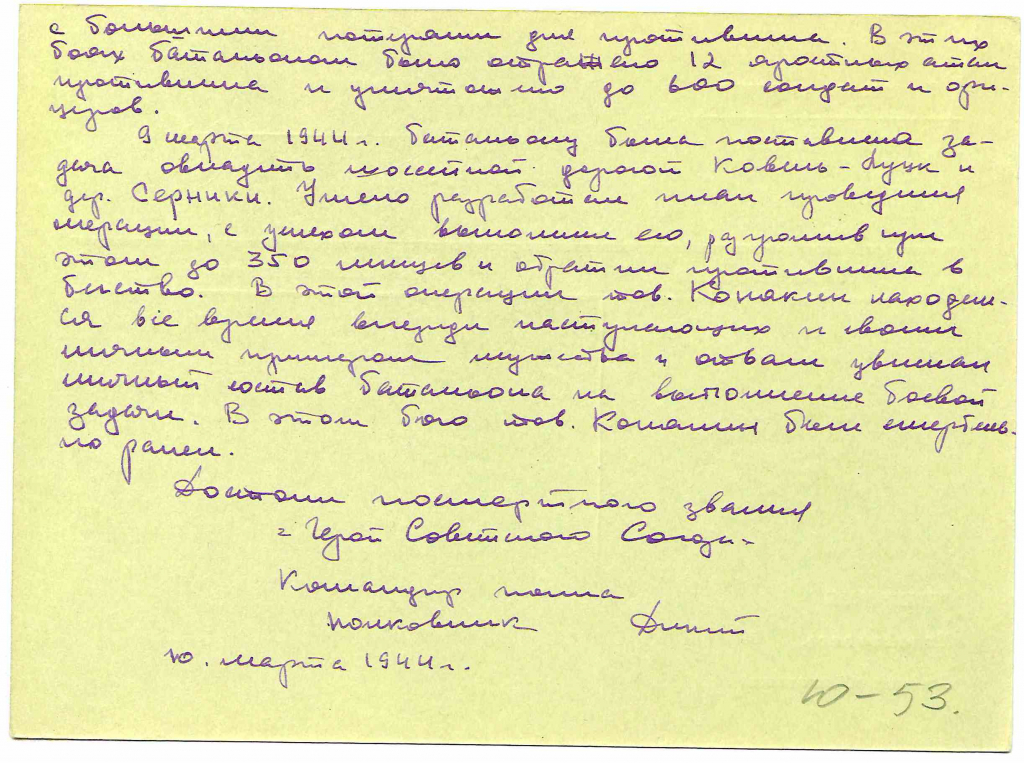 с большими потерями для противника. В этих
боях батальоном было отражено 12 яростных атак
противника и уничтожено до 600 солдат и офи-
церов.
9 марта 1944 г. батальону была поставлена за-
дача овладеть шоссейной дорогой Ковель-Луцк и
дер. Серники. Умело разработал план проведения
операции, с успехом выполнил его, разгромив при
этом до 350 немцев и обратил противника в
бегство. В этой операции тов. Конякин находил-
ся все время впереди наступающих и своим
личным примером мужества и отваги увлекал
личный состав батальона на выполнение боевой
задачи. В этом бою тов. Конякин был смертель-
но ранен.
Достоин посмертного звания
"Герой Советского Союза"
Командир полка
полковник
10. марта 1944 г.
Ю-53.